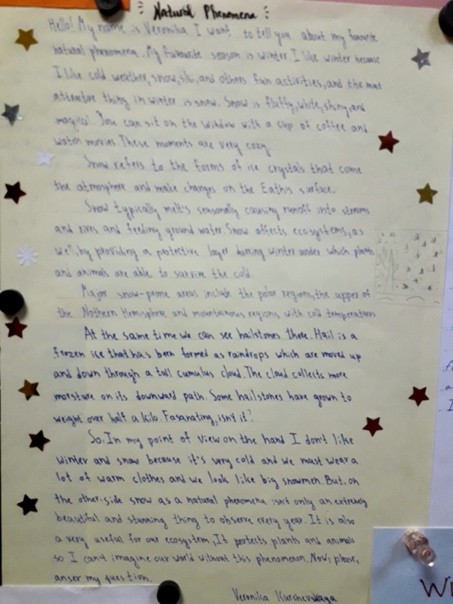 Natural Phenomena
Hello! My name is Veronika I want to tell you about my favorite
natural phenomena. My favourite season is winter. I like winter because
I like cold weather, snow, ski, and others fun activities, and the most
attractive thing in winter is snow. Snow is fluffy, white, shiny, and
magical. You can sit on the window with a cup of coffee and
watch movies. These moments are very cozy
Snow refers to the forms of ice crystals that come
the atmosphere and make changes on the Eath's surface.
Snow typically melts seasonally causing runoff into streams
and rivers and feeding ground water. Snow affects ecosystems, as
well, by providing a protective layer during winter under which plants
and animals are able to survive the cold.
Major snow-prone areas include the polar regions, the upper of
the Nothern Hemisphere and mountainous regions with cold temperatures
At the same time we can see hailstones there. Hail is a
frozen ice that has been formed as raindrops which are moved up
and down through a tall cumulus cloud. The cloud collects more
moresture on its downward path. Some hailstones have grown to
weight over half a kilo. Fasanating, isn't it?
So. In my point of view on the hand I don't like
winter and snow because it's very cold and we must wear a
lot of warm clothes and we look like big snowmen. But. on
the other side snow as a natural phenomena isn't only an extremly
beautiful and stunning thing to observe every year. It is also
a very useful for our ecosystem, It protects plants and animals
so I can't imagine our world without this phenomenon. Now, please,
anser my question.
Veronika
W